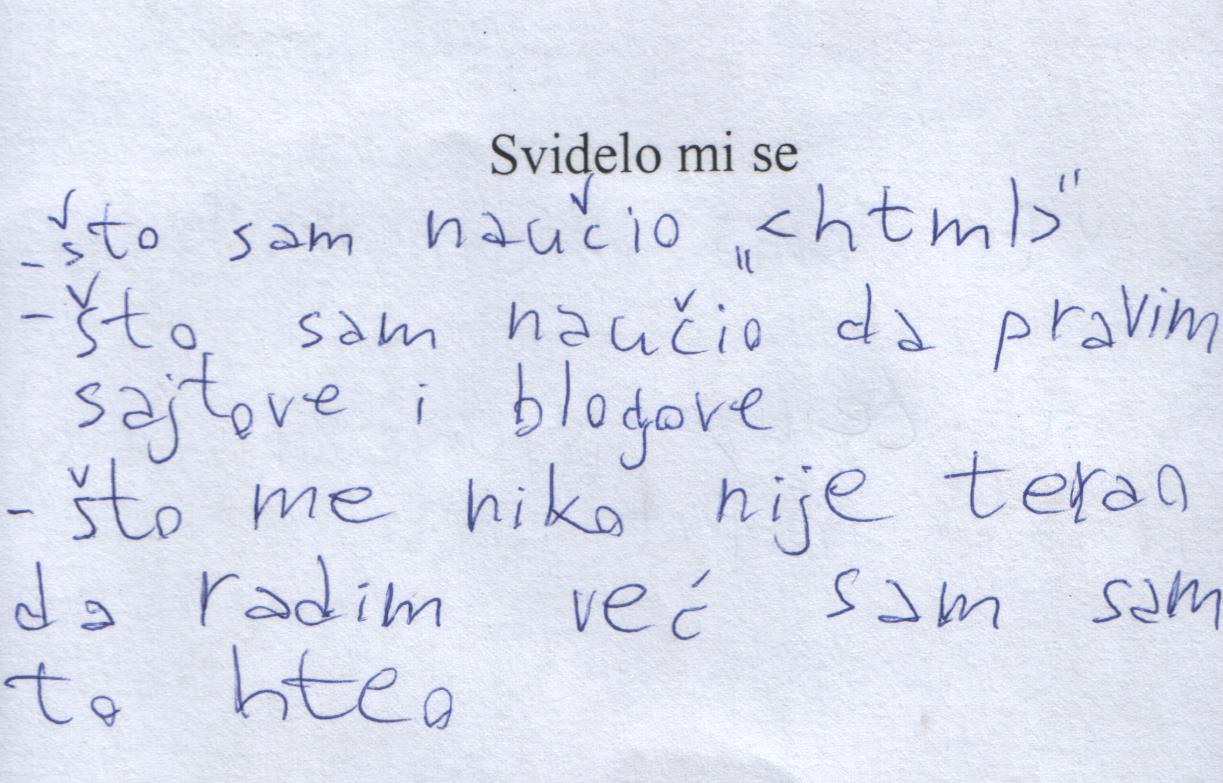 Svidelo mi se
- što sam naučio „<html>"
- što sam naučio da pravim
sajtove i blogove
- što me niko nije terao
da radim već sam sam
to hteo